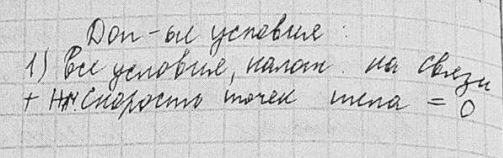 Доп-ые условия:
1) Все условия, налож. на связи
+ Нач скорость точек тела = 0